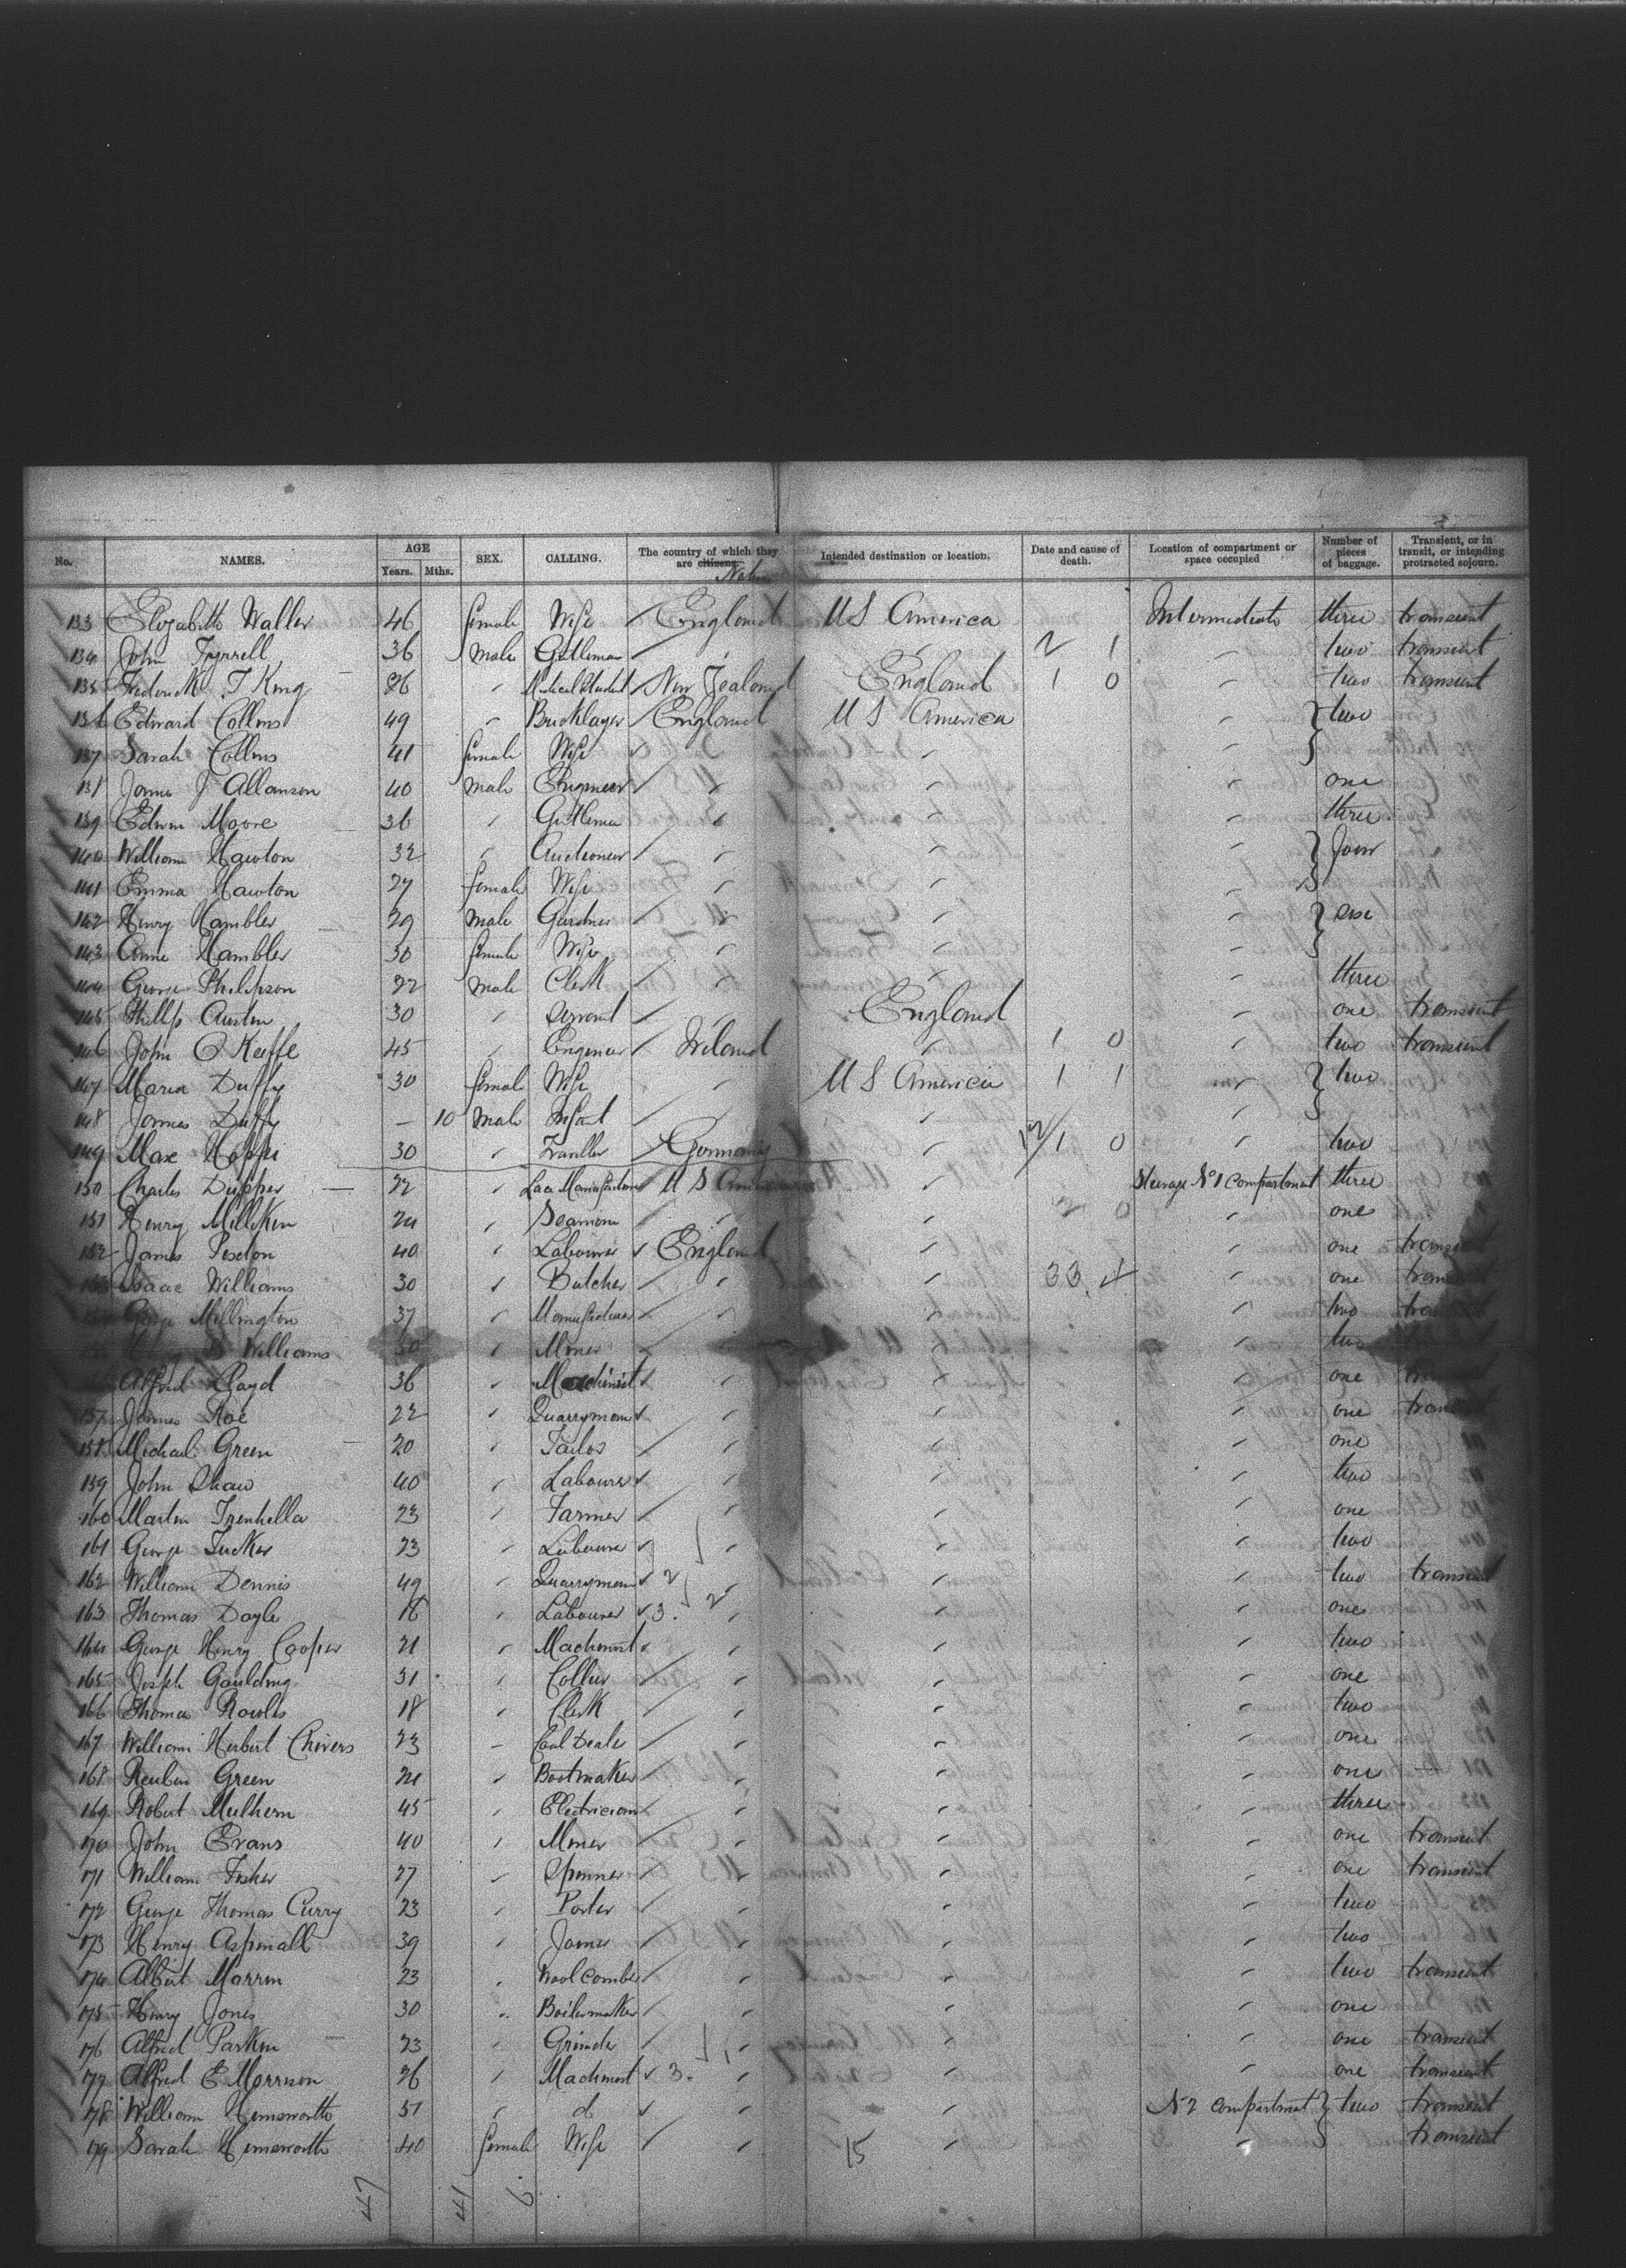 No. NAMES. AGE Years. Mths. SEX. CALLING. The country of which they are citizens. Intended destination or location. Date and cause of death. Location of compartment or space occupied Number of pieces of baggage. Transient, or in transit, or intending protracted sojourn.
133 Elizabeth Waller 46 female Wife England U S America Intermediate three transient
134 John Tyrrell 36 male 2 1 two transient
135 Frederick T King 26 Medical Student New Zealand England 1 0 two transient
136 Edward Collins 49 Bricklayer England U S America two
137 Sarah Collins 41 female Wife
138 James J Allanson 40 male Engineer one
139 Edwin Moore 36 three
140 William Hawton 32 four
141 Emma Hawton 27 female Wife
142 Henry Hambler 29 male one
143 Annie Hambler 30 female Wife
144 George Philipson 22 male Clerk three
145 Phillip Austin 30 Servant England one transient
146 John O Keeffe 45 Engineer Ireland 1 0 two transient
147 Maria Duffy 30 female Wife U S America 1 1 two
148 James Duffy — 10 male Infant
149 Max 30 Traveller Germany 1 0 two
150 Charles Dupper 22 Lace U S America Steerage No 1 Compartment three
151 Henry Milliken 24 Seaman 2 0 one
152 James 40 Labourer England one transient
153 Isaac Williams 30 Butcher 33 4 one
154 George Millington 37 Manufacturer two
Williams 30 Miner two
Alfred Lloyd 36 Machinist one
157 James Roe 22 Quarryman one
158 Michael Green 20 Tailor one
159 John Shaw 40 Labourer two
160 Martin Trenhella 23 Farmer one
161 George Tucker 23 Labourer two
162 William Dennis 49 Quarryman 2 two transient
163 Thomas Doyle 16 Labourer 3. 2 one
164 George Henry Cooper 21 Machinist two
165 Joseph Gaulding 31 Collier one
166 Thomas Rowles 18 Clerk two
167 William Herbert Chivers 23 Coal Dealer one
168 Reuben Green 21 Bootmaker one
169 Robert Mulhern 45 Electrician three
170 John Evans 40 Miner one transient
171 William Fisher 27 Spinner one transient
172 George Thomas Curry 23 Porter two
173 Henry Aspinall 39 two
174 Albert Marrin 23 Wool Comber two transient
175 Henry Jones 30 Boilermaker one
176 Alfred Parkin 23 Grinder one transient
177 Alfred E Morrison 26 Machinist 3. one transient
178 William Hemsworth 51 do No 2 Compartment two transient
179 Sarah Hemsworth 40 female Wife transient
15
47 41 6